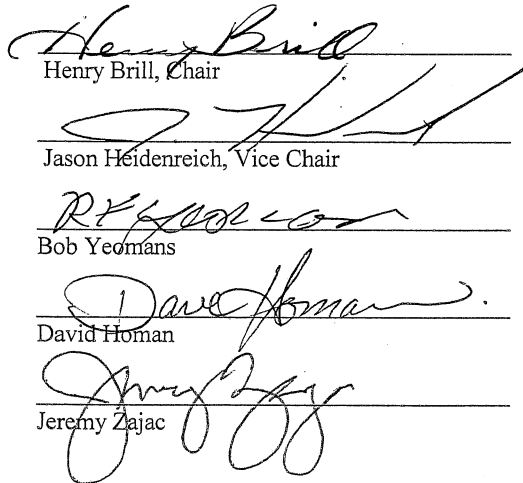 Henry Brill
Henry Brill, Chair
Jason Heidenreich, Vice Chair
Bob Yeomans
Dave Homan
David Homan
Jeremy Zajac